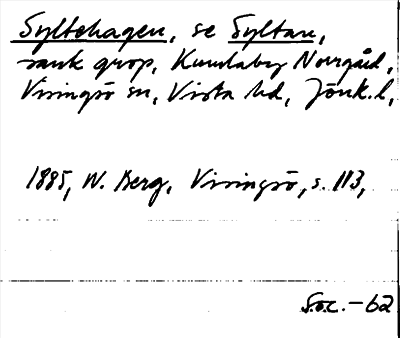 Syltehagen, se Syltan,
sank grop, Kumlaby Norrgård,
Visingsö sn, Vista hd, Jönk. l,
1885, W. Berg, Visingsö, s. 113,
S.o.c. – 62